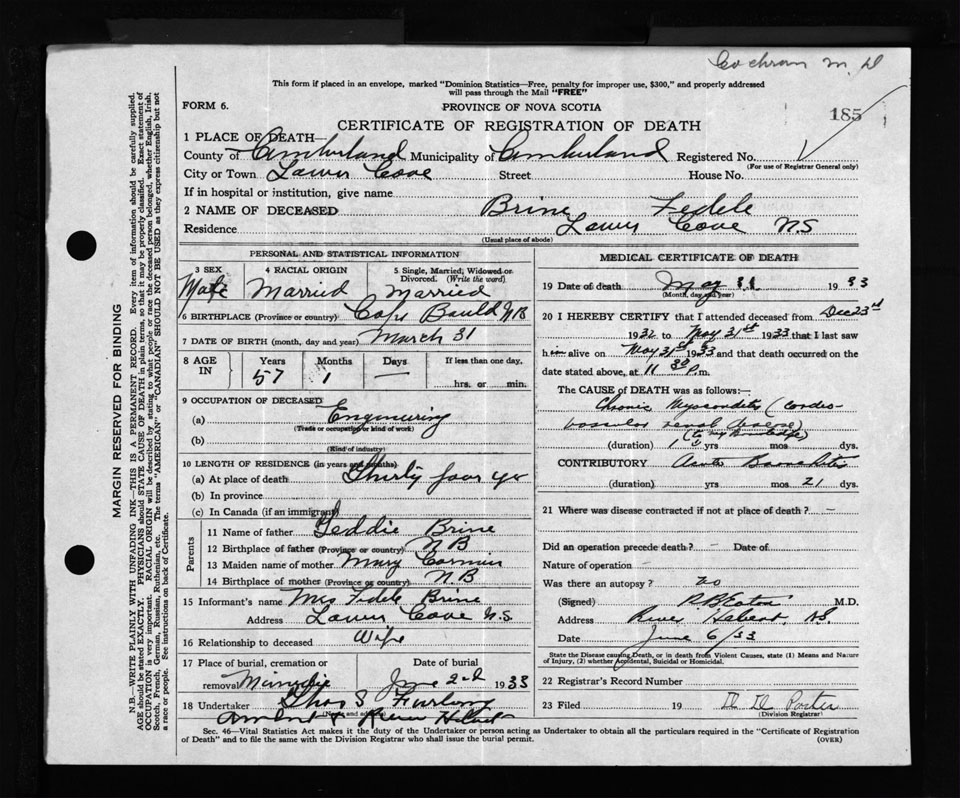 Cochran M.D
This form if placed in an envelope, marked "Dominion Statistics—Free, penalty for improper use, $300," and properly addressed
will pass through the Mail "FREE"
FORM 6.
PROVINCE OF NOVA SCOTIA
185
CERTIFICATE OF REGISTRATION OF DEATH
1 PLACE OF DEATH—
County of Cumberland Municipality of Cumberland Registered No.
(For use of Registrar General only)
City or Town Lower Cove Street House No.
If in hospital or institution, give name
2 NAME OF DECEASED Brine Fedele
Residence Lower Cove N.S
(Usual place of abode)
PERSONAL AND STATISTICAL INFORMATION
3 SEX 4 RACIAL ORIGIN 5 Single, Married, Widowed or Divorced. (Write the word)
Male Married Married
6 BIRTHPLACE (Province or country) Cape Bauld N B
7 DATE OF BIRTH (month, day and year) March 31
8 AGE IN Years Months Days If less than one day,
57 1 — hrs. or min.
9 OCCUPATION OF DECEASED
(a) Engineering
(Trade or occupation or kind of work)
(b)
(Kind of industry)
10 LENGTH OF RESIDENCE (in years and months)
(a) At place of death Thirty four yr
(b) In province
(c) In Canada (if an immigrant)
Parents
11 Name of father Feddie Brine
12 Birthplace of father (Province or country) N B
13 Maiden name of mother Mary Cormier
14 Birthplace of mother (Province or country) N.B
15 Informant's name Mrs Fidele Brine
Address Lower Cove N.S
16 Relationship to deceased Wife
17 Place of burial, cremation or Date of burial
removal Minudie June 2nd 1933
18 Undertaker Thos S Furlong
(Name and address)
Amherst & River Hebert
MEDICAL CERTIFICATE OF DEATH
19 Date of death May 31 1933
(Month, day and year)
20 I HEREBY CERTIFY that I attended deceased from Dec 23rd
1932 to May 31st 1933 that I last saw
him alive on May 31st 1933 and that death occurred on
date stated above, at 11 30 P.m.
The CAUSE of DEATH was as follows:—
Chronic Myocarditis (cardio-
vascular renal disease)
(to my knowledge)
(duration) 1 yrs mos dys.
CONTRIBUTORY Acute Bronchitis
(duration) yrs mos 21 dys.
21 Where was disease contracted if not at place of death? —
Did an operation precede death? — Date of
Nature of operation —
Was there an autopsy? no
(Signed) R B Eaton M.D.
Address River Hebert N.S.
Date June 6/33
State the Disease causing Death, or in death from Violent Causes, state (1) Means and Nature
of Injury, (2) whether Accidental, Suicidal or Homicidal.
22 Registrar's Record Number
23 Filed 19 D D Porter
(Division Registrar)
Sec. 46—Vital Statistics Act makes it the duty of the Undertaker or person acting as Undertaker to obtain all the particulars required in the "Certificate of Registration
of Death" and to file the same with the Division Registrar who shall issue the burial permit. (OVER)
MARGIN RESERVED FOR BINDING
N.B.—WRITE PLAINLY WITH UNFADING INK—THIS IS A PERMANENT RECORD. Every item of information should be carefully supplied.
AGE should be stated EXACTLY. PHYSICIANS should STATE CAUSE OF DEATH in plain terms, so that it may be properly classified. Exact statement of
OCCUPATION is very important. RACIAL ORIGIN will be described by stating to what people or race the deceased person belonged, whether English, Irish,
Scotch, French, German, Russian, Ruthenian, etc. The terms "AMERICAN" or "CANADIAN" SHOULD NOT BE USED as they express citizenship but not
a race or people. See instructions on back of Certificate.